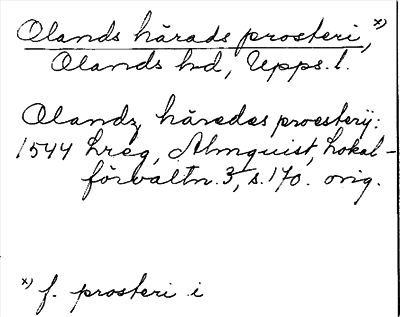 Olands härads prosteri, x)
Olands hd, Upps. l.
Olandz häredes proesterÿ:
1544 Lreg, Almquist, Lokal-
förvaltn. 3, s. 170. orig.
x) f. prosteri i